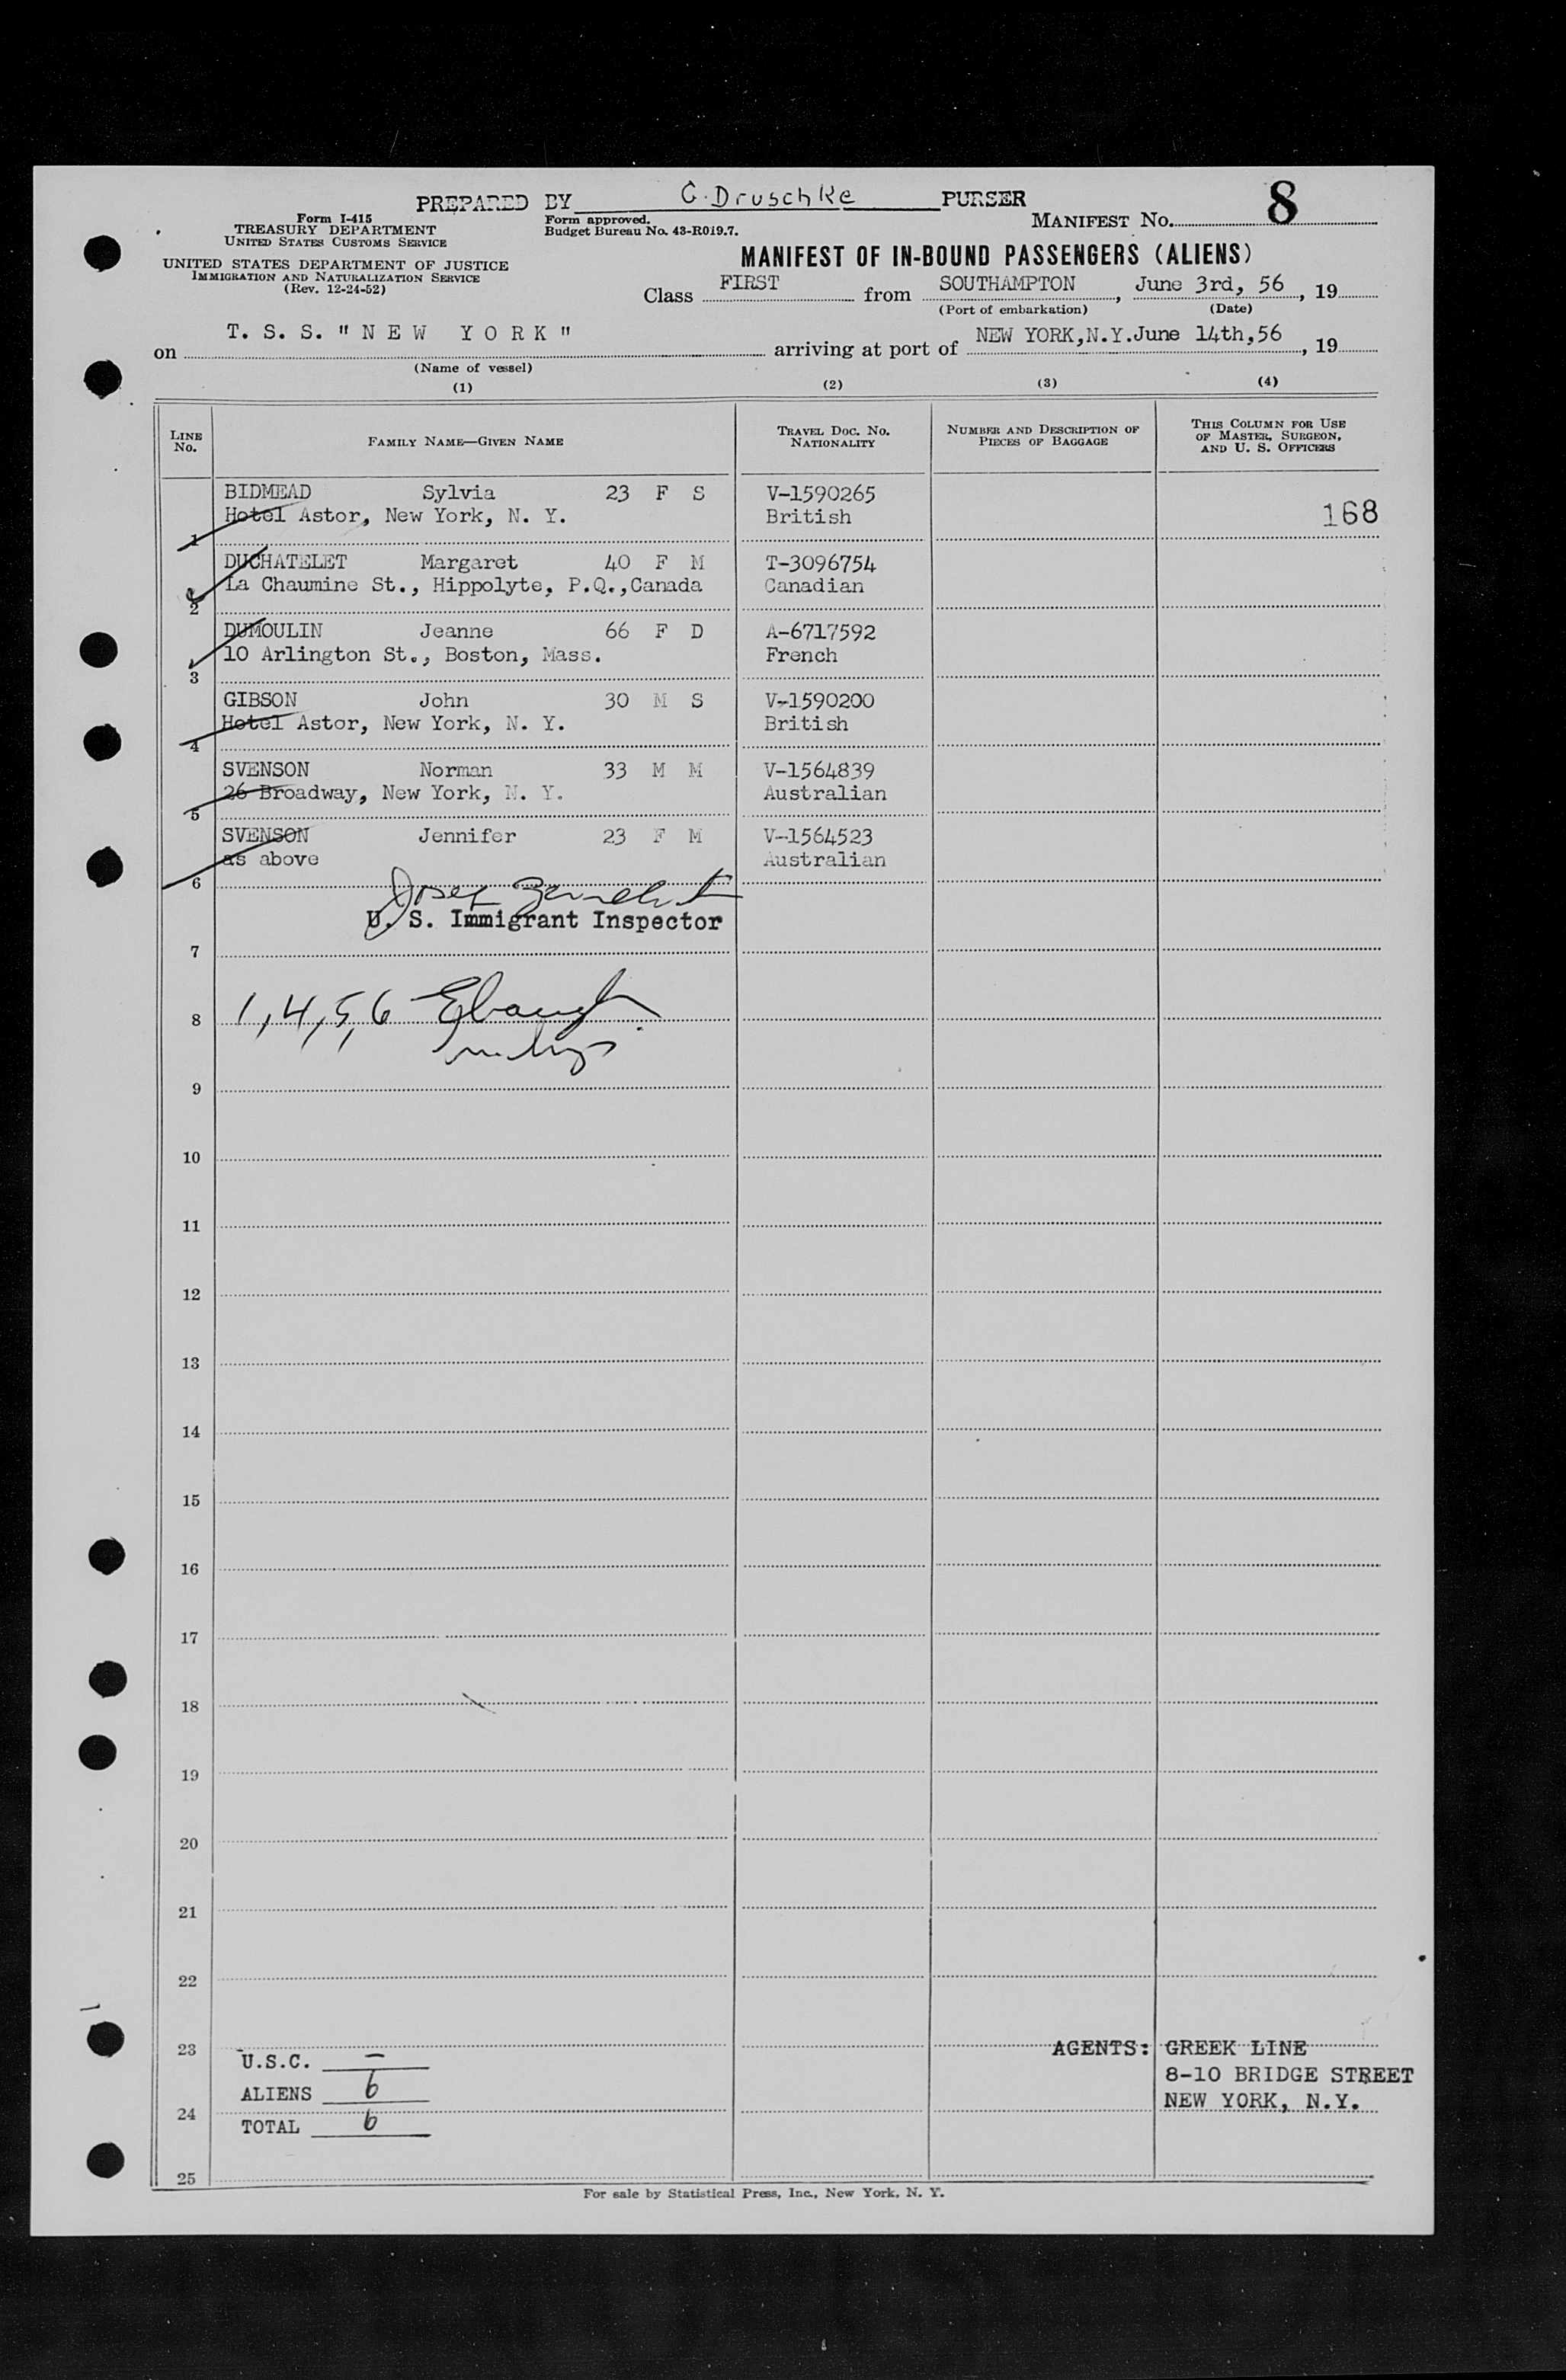 PREPARED BY G. Druschke PURSER
Form I-415
TREASURY DEPARTMENT
UNITED STATES CUSTOMS SERVICE
Form approved.
Budget Bureau No. 43-R019.7.
MANIFEST No. 8
UNITED STATES DEPARTMENT OF JUSTICE
IMMIGRATION AND NATURALIZATION SERVICE
(Rev. 12-24-52)
MANIFEST OF IN-BOUND PASSENGERS (ALIENS)
Class FIRST from SOUTHAMPTON, June 3rd, 56, 19
(Port of embarkation) (Date)
on T. S. S. "NEW YORK" arriving at port of NEW YORK, N.Y. June 14th, 56, 19
(Name of vessel)
(1) (2) (3) (4)
LINE No. FAMILY NAME—GIVEN NAME TRAVEL DOC. No. NATIONALITY NUMBER AND DESCRIPTION OF PIECES OF BAGGAGE THIS COLUMN FOR USE OF MASTER, SURGEON, AND U. S. OFFICERS
BIDMEAD Sylvia 23 F S V-1590265
Hotel Astor, New York, N. Y. British 168
1
DUCHATELET Margaret 40 F M T-3096754
La Chaumine St., Hippolyte, P.Q.,Canada Canadian
2
DUMOULIN Jeanne 66 F D A-6717592
10 Arlington St., Boston, Mass. French
3
GIBSON John 30 M S V-1590200
Hotel Astor, New York, N. Y. British
4
SVENSON Norman 33 M M V-1564839
26 Broadway, New York, N. Y. Australian
5
SVENSON Jennifer 23 F M V-1564523
as above Australian
6
U. S. Immigrant Inspector
7
8 1, 4, 5, 6
9
10
11
12
13
14
15
16
17
18
19
20
21
22
23
U.S.C. –
ALIENS 6
24
TOTAL 6
25
AGENTS: GREEK LINE
8-10 BRIDGE STREET
NEW YORK, N.Y.
For sale by Statistical Press, Inc., New York, N. Y.